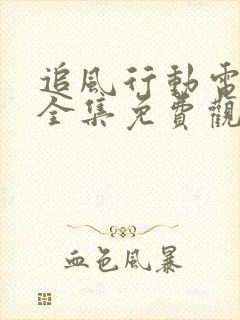 追風行動電
全集免費觀
血色風暴